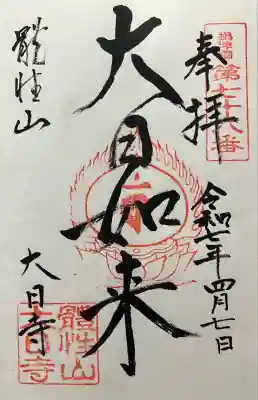 奉拝
第七十八番
令和七年四月七日
大日如来
體性山
大日寺
體性山
大日寺